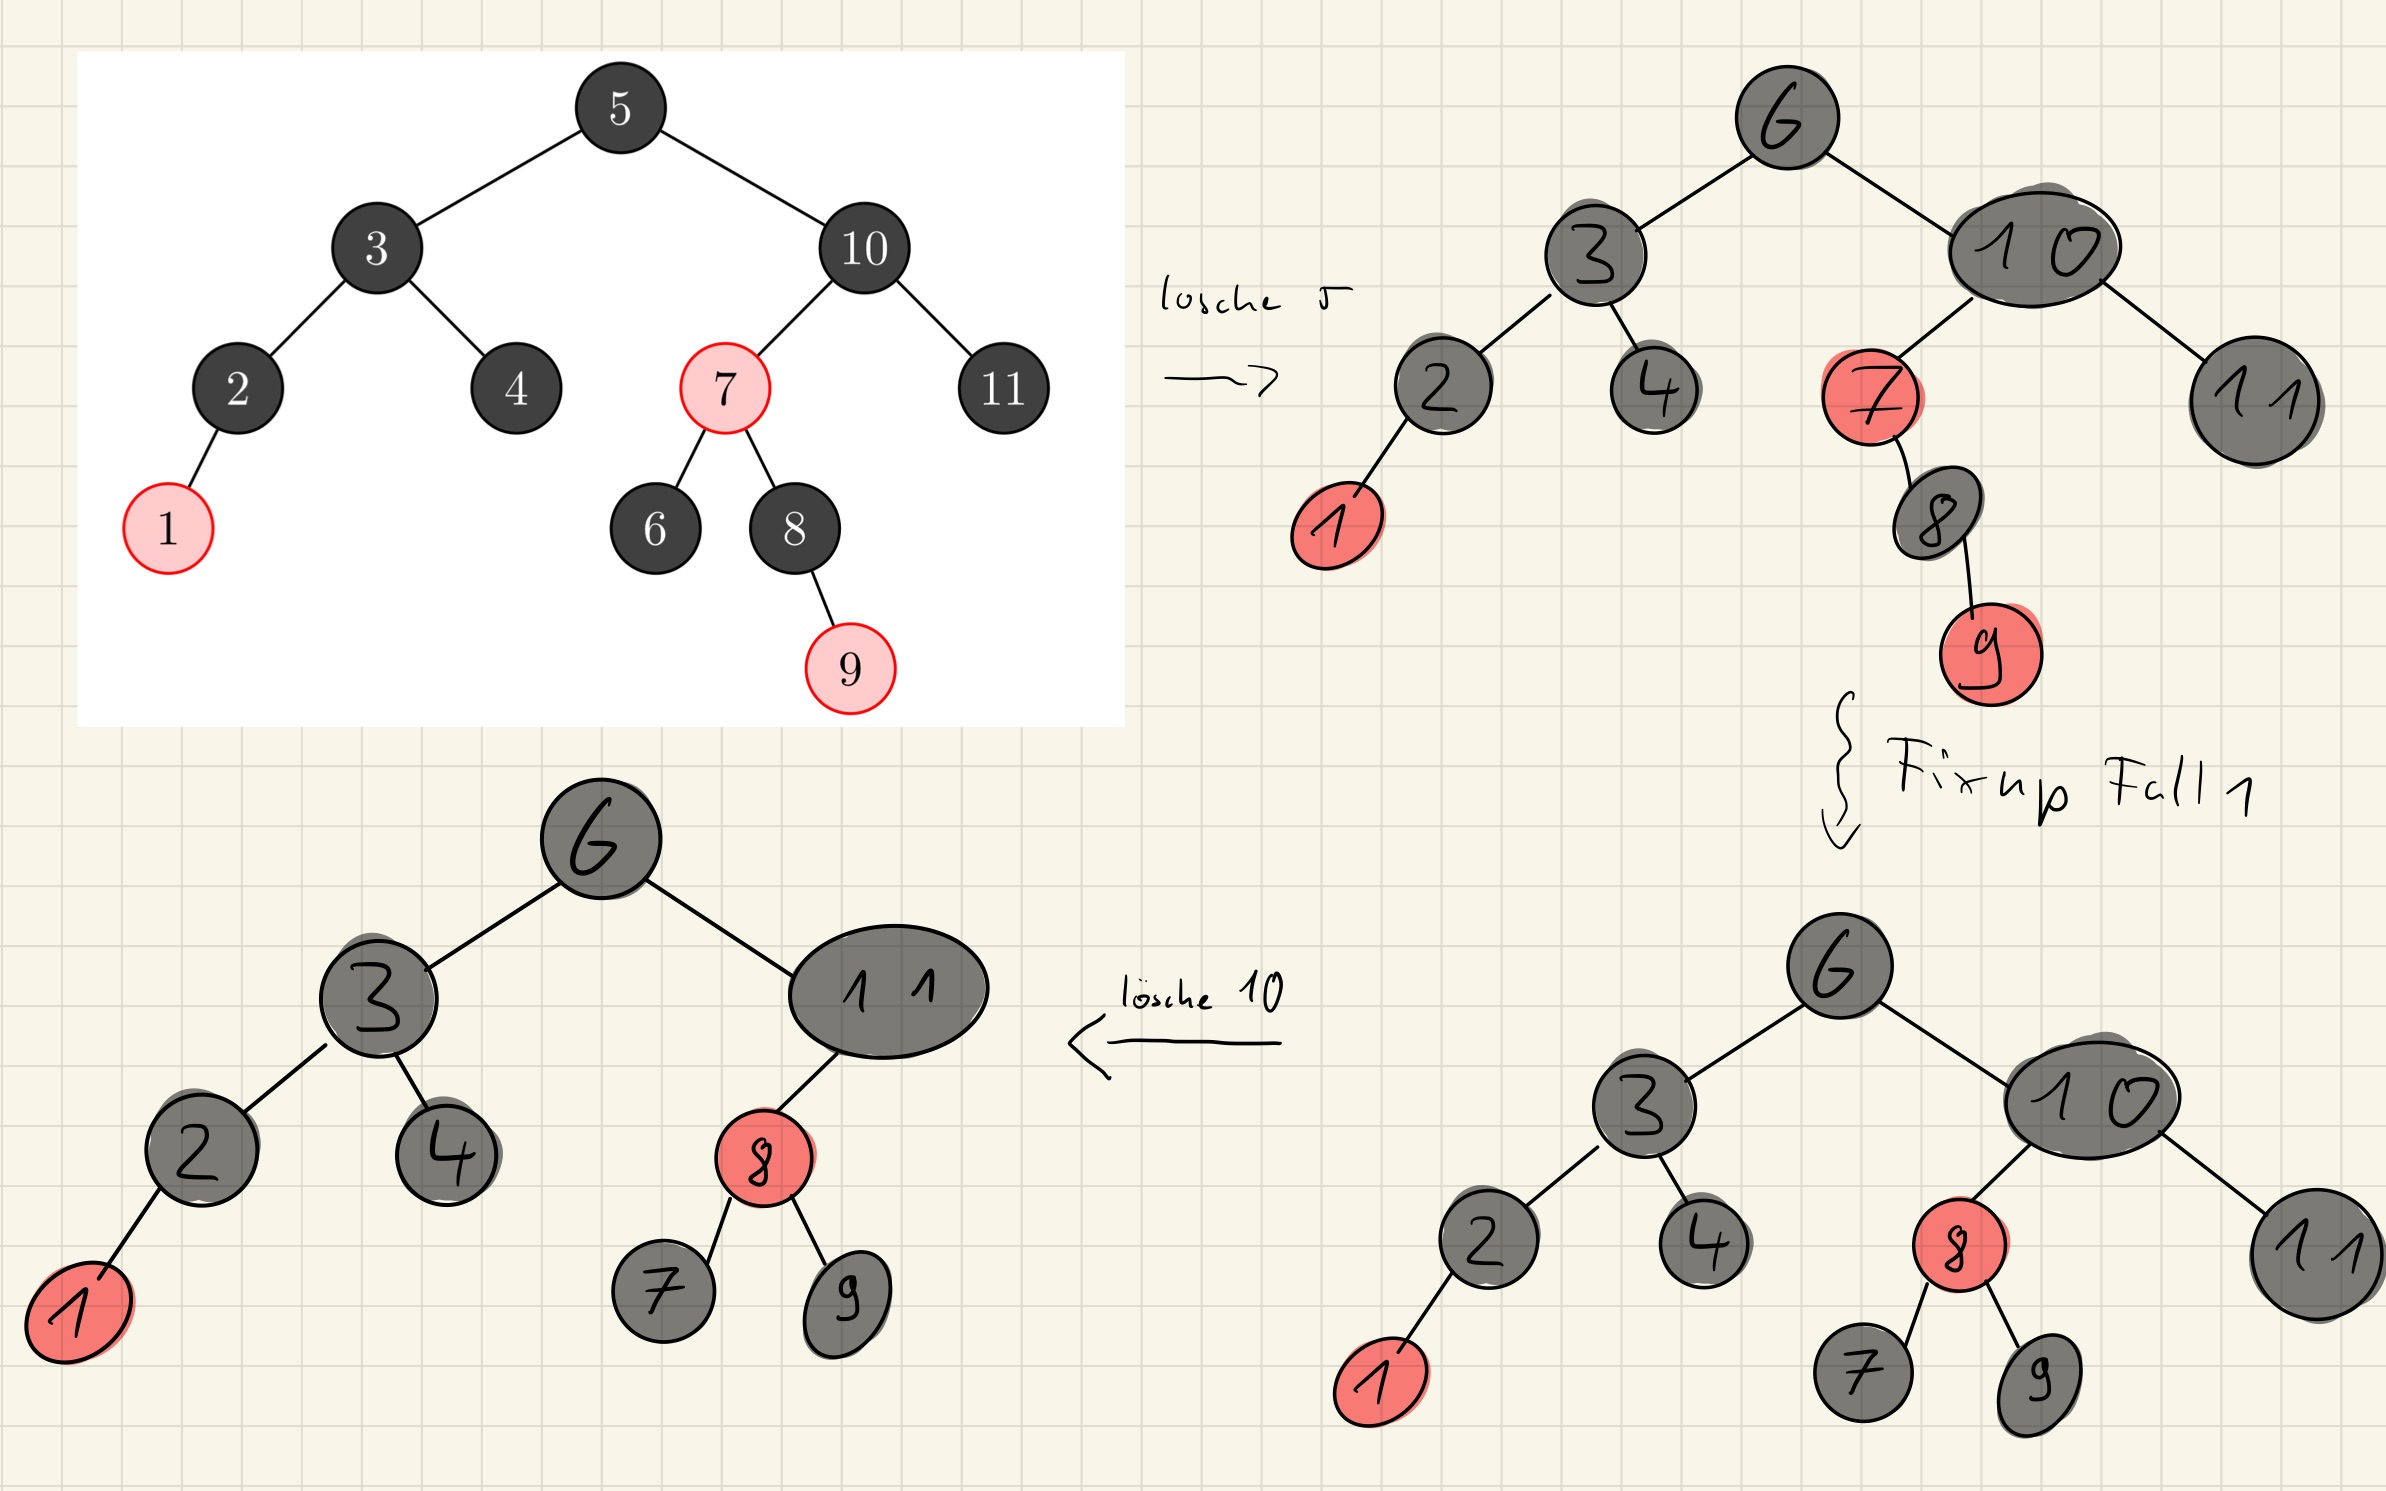 5
3 10
2 4 7 11
1 6 8
9
6
3 10
2 4 7 11
1 8
9
lösche 5
Fixup Fall 1
6
3 10
2 4 8 11
1 7 9
lösche 10
6
3 11
2 4 8
1 7 9